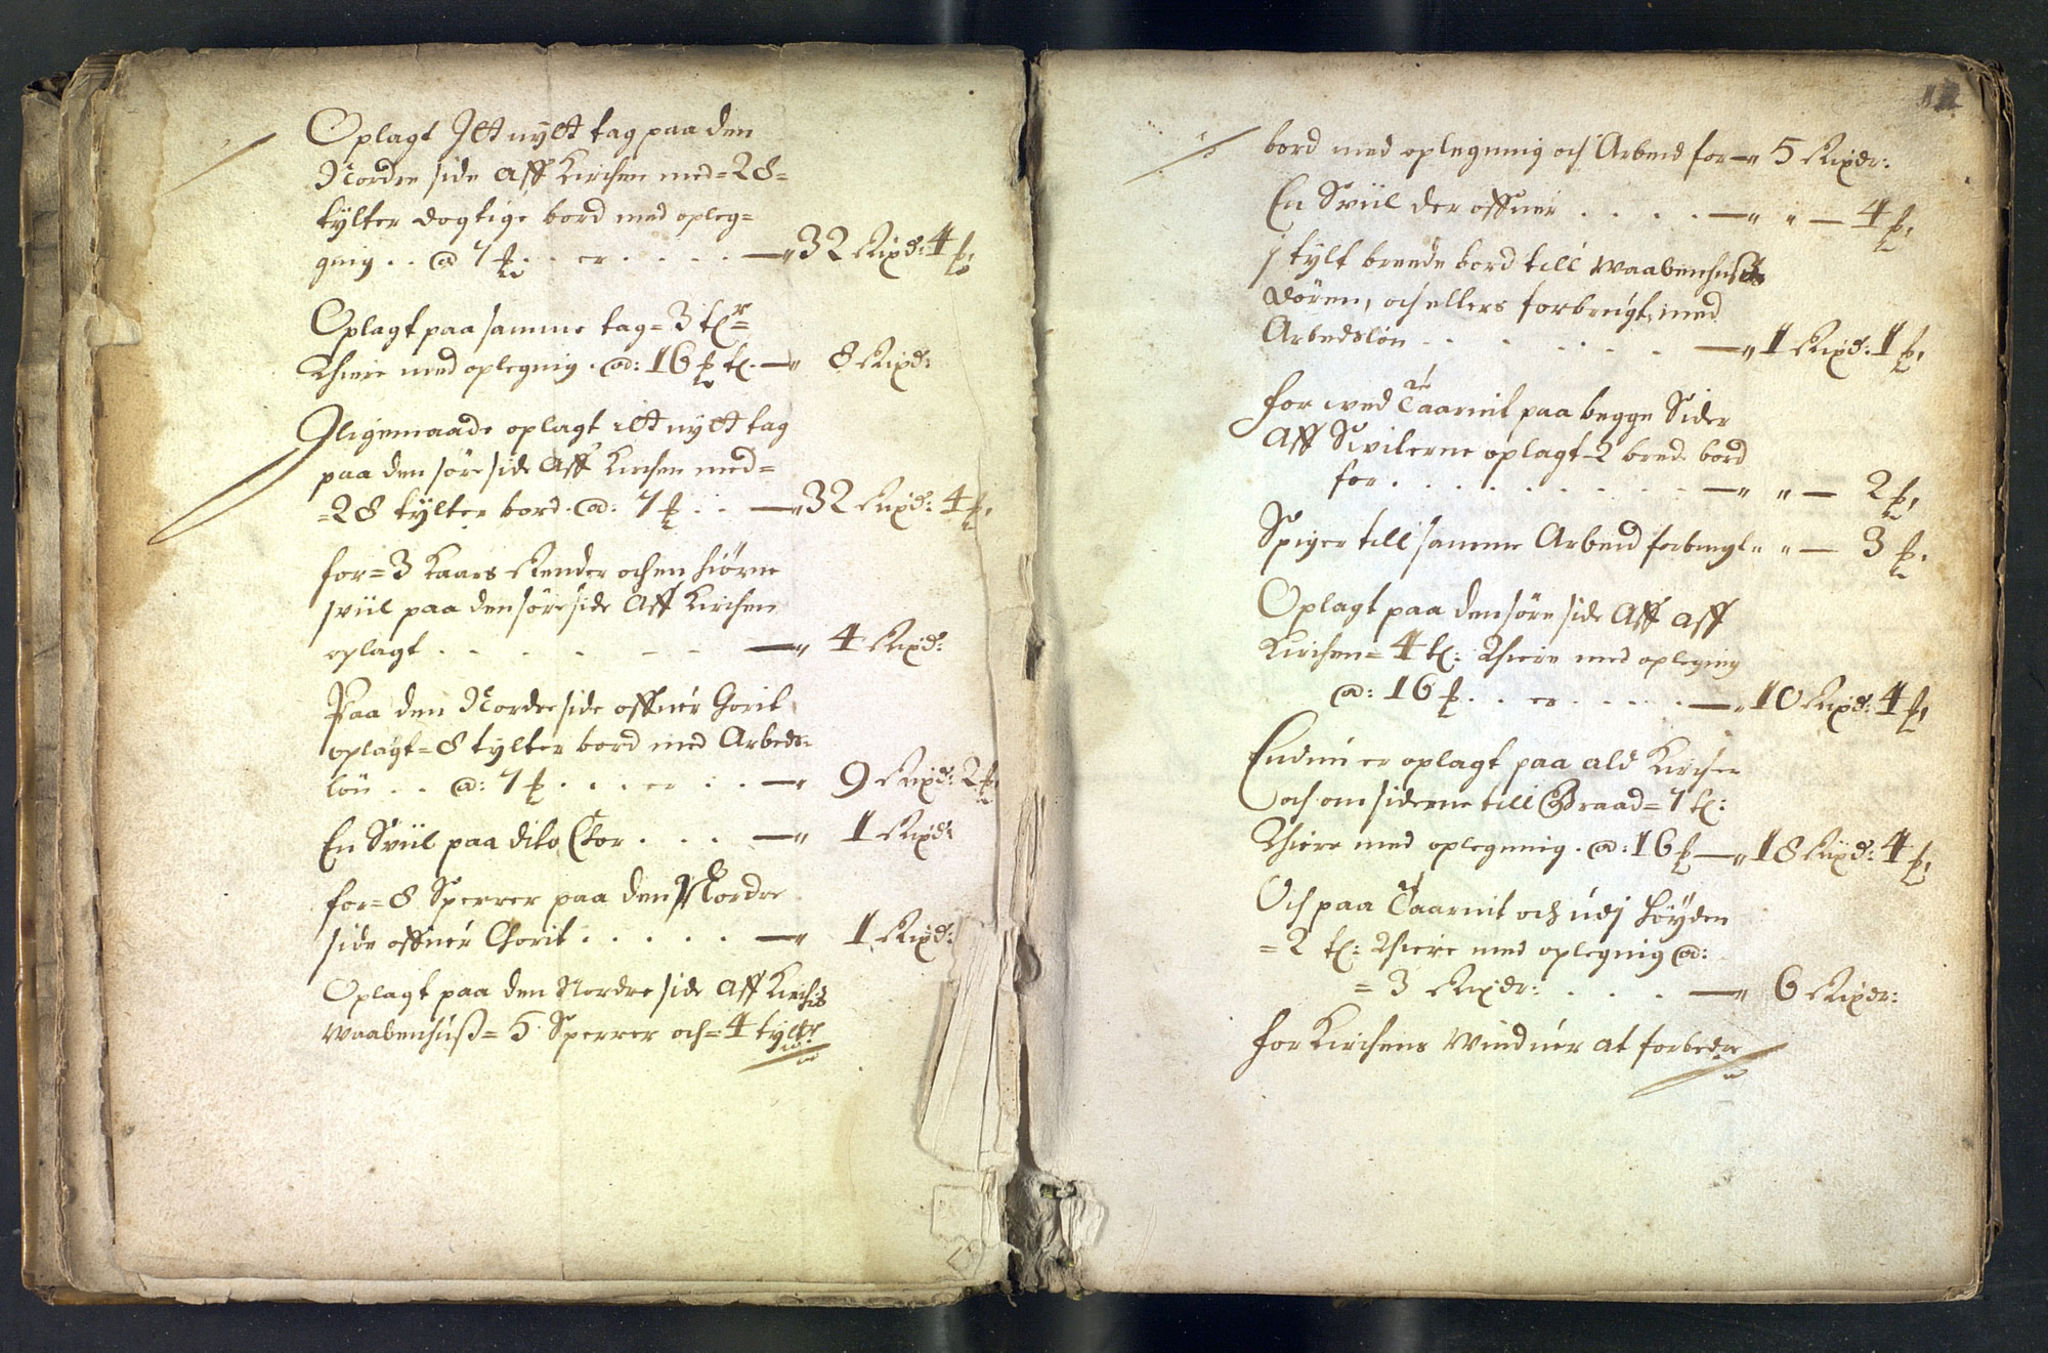 Oplagt Itt nÿtt tag paa den
Nordre side Aff Kirchen med = 28 =
tÿlter dogtige bord med opleg=
gnig . . @ 7 ß . . er . . . . — 32 Rixd: 4 ß,
Oplagt paa samme tag = 3 tr =
Thiere med oplegnig . @: 16 ß t. — 8 Rixd:
Iligemaade oplagt itt nytt tag
paa den søre side Aff Kirchen med =
= 28 tÿlter bord . @: 7 ß . . — 32 Rixd: 4 ß,
for = 3 Kaars Render och en hiørne
sviil paa den søre side Aff Kirchen
oplagt . . . . . . — 4 Rixd:
Paa den Nordre side offuer Chorit
oplagt = 8 tÿlter bord med Arbeds=
lön . . @: 7 ß . . . er . . — 9 Rixd: 2 ß,
En Sviil paa dito Chor . . . — 1 Rixd:
for = 8 Sperrer paa den Nordre
side offuer Chorit . . . . . — 1 Rixd:
Oplagt paa den Nordre side Aff Kirchens
Waabenhuß = 5 Sperrer och = 4 tylter
bord med oplegnnig och Arbeid for — 5 Rixdr:
En Sviil der offuer . . . . — " — 4 ß,
1 tylt brende bord till Waabenhusets
dören, och ellers forbrugt, med
Arbedslön . . . . . . — 1 Rixd: 1 ß,
for ved Taarnit paa begge Sider
Aff Svilerne oplagt 2 bred bord
for . . . . . . . . . — " — 2 ß,
Spiger till samme Arbeid forbrugt " " — 3 ß,
Oplagt paa den søre side Aff aff
Kirchen = 4 t: Thiere med oplegnig
@: 16 ß . . er . . . . . — 10 Rixd: 4 ß,
Endnu er oplagt paa ald Kirchen
och om siderne till = 7 t:
Thiere med oplegnnig . @: 16 ß — 18 Rixd: 4 ß,
Och paa Taarnit och udj höyden
= 2 t: Thiere med oplegnig @:
= 3 Rixdr: . . . — 6 Rixdr:
for Kirchens Winduer at forbedre